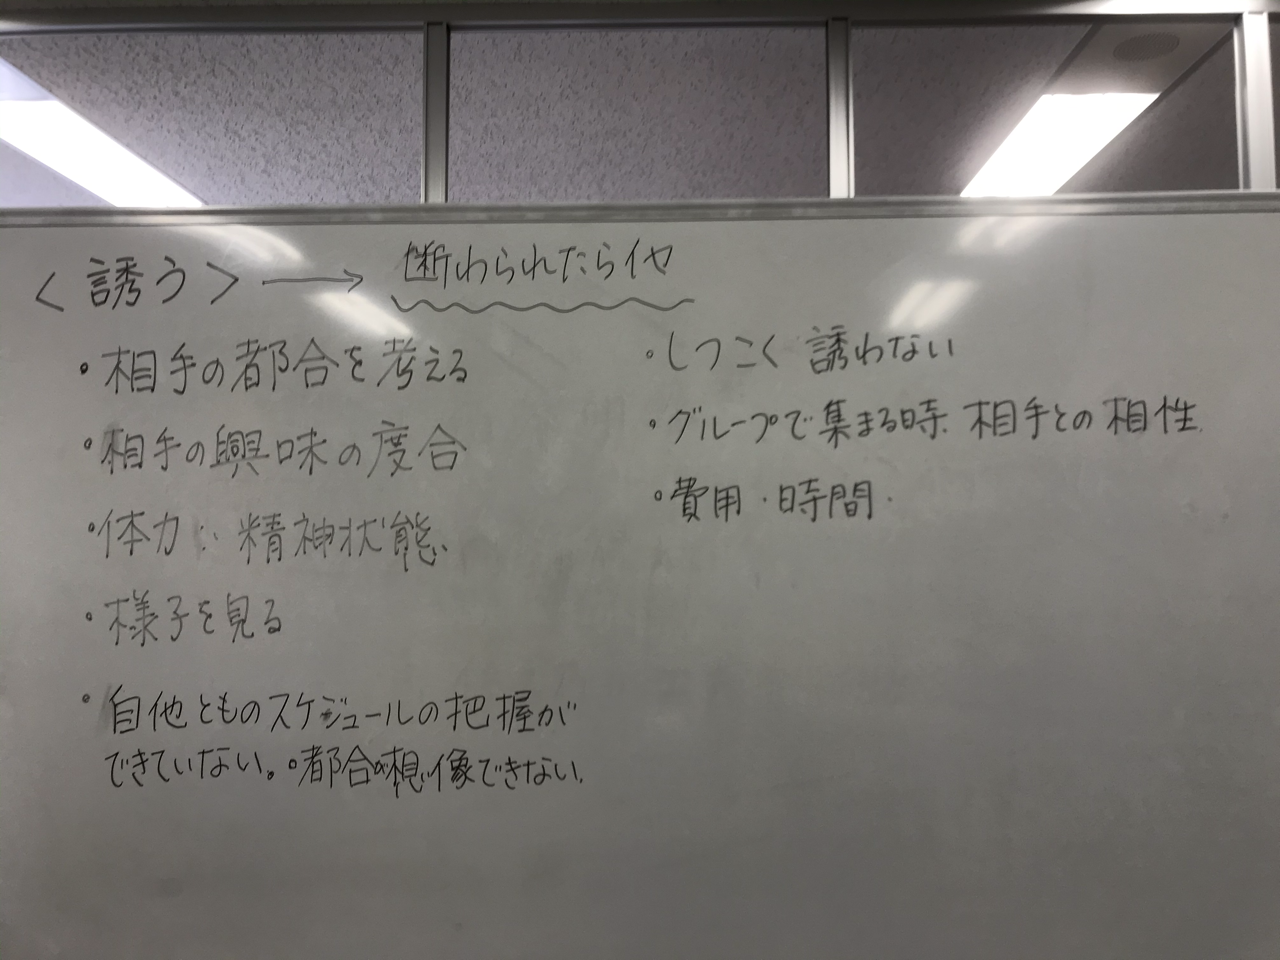 <誘う> → 断わられたらイヤ
・相手の都合を考える
・相手の興味の度合
・体力・精神状態
・様子を見る
・自他とものスケジュールの把握が
できていない。・都合が想像できない。
・しつこく誘わない
・グループで集まる時、相手との相性
・費用・時間・